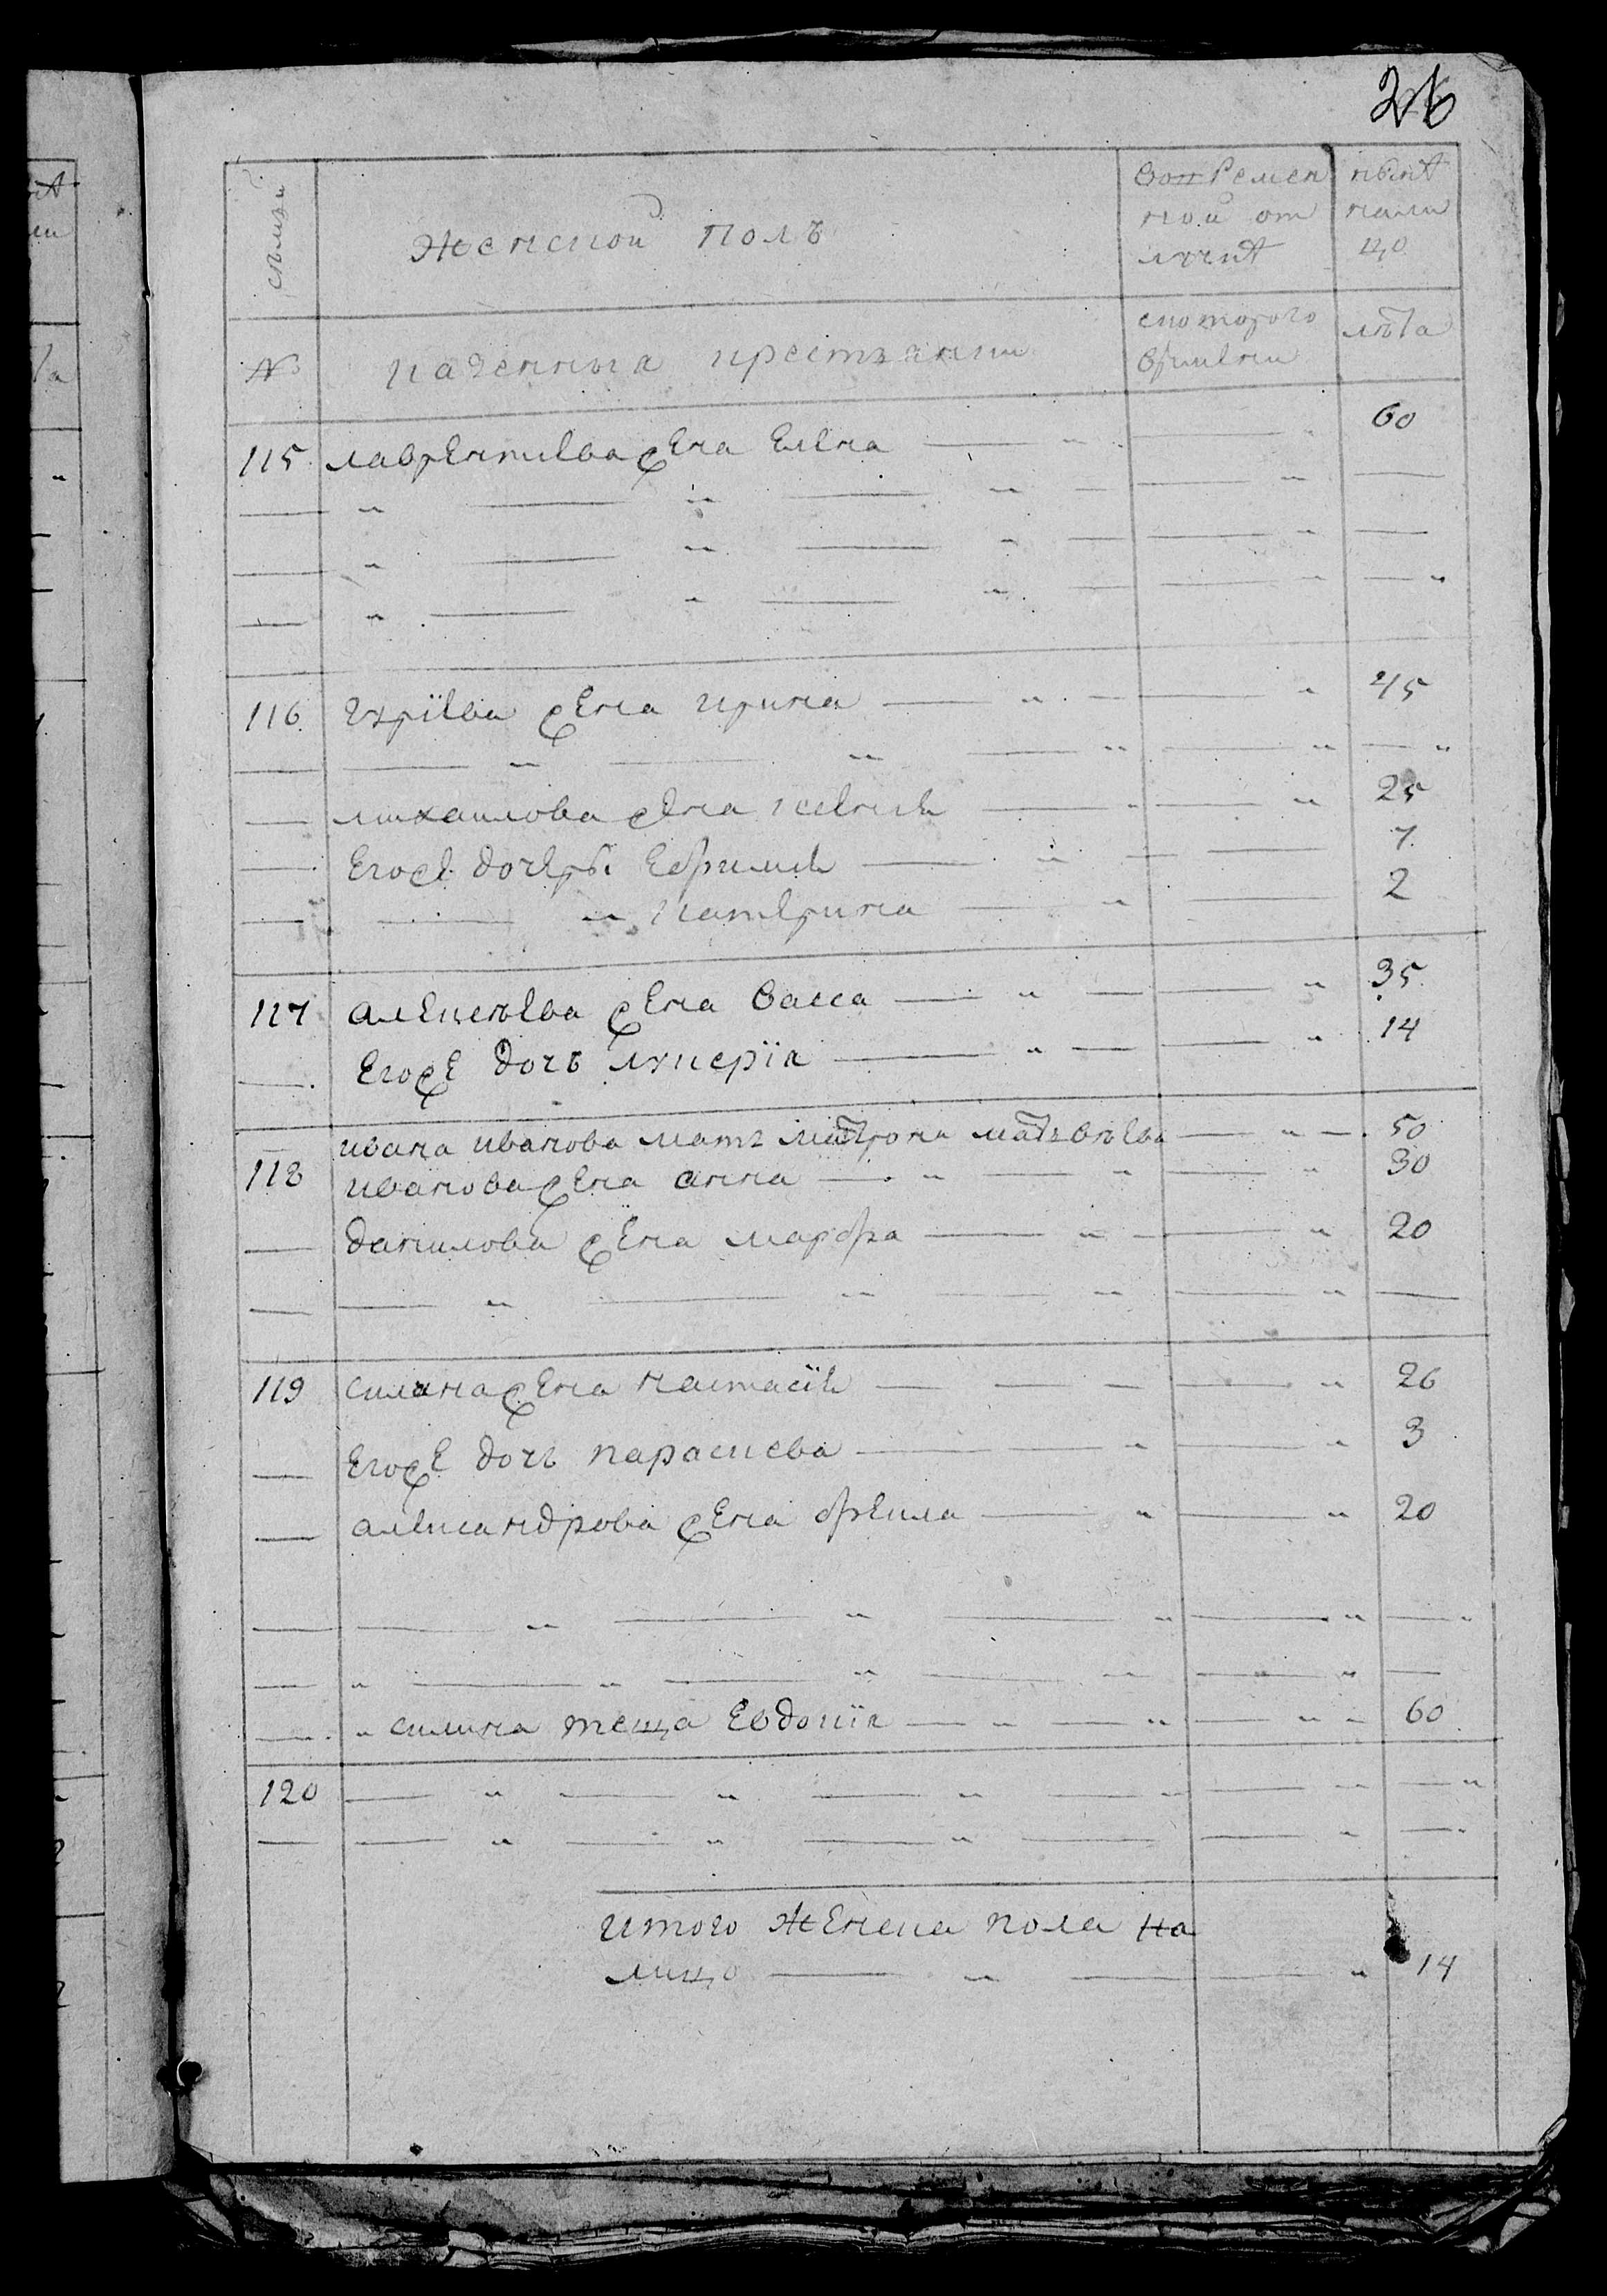 26
семьи
Женской полъ
Вовремен
ной от
лучкѣ
нынѣ
нали
цо
№
казенныя крестьянки
с которого
времени
лѣта
115 лаврентиева жена елена — " — " 60
116 гурїева жена ирина — " — " 45
михаилова жена ксения — " — " 25
Егоже дочери Ефимия — " — 7
— " катерина — " — 2
117 алексѣева жена васса — " — " 35
Егоже дочь лукерїя — " — " 14
ивана иванова мать матрона матвѣева — " — 50
118 иванова жена анна — " — " — " 30
данилова жена марфа — " — " 20
119 силина жена настасїя — " 26
Егоже дочь параскева — " — " 3
александрова жена фекла — " — " 20
" силина теща Евдокїя — " — " — " 60
120 — " — " — " — " — " — "
итого женска пола на
лицо — " — " 14